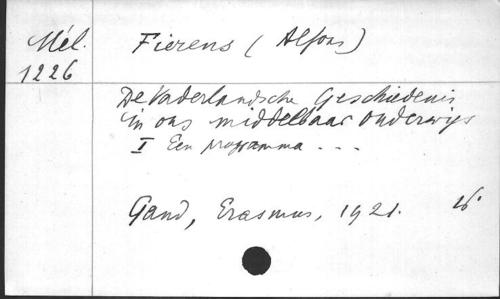 Mél.
1226
Fierens (Alfons)
De Vaderlandsche Geschiedenis
in ons middelbaar onderwijs
I Een programma ...
Gand, Erasmus, 1921.